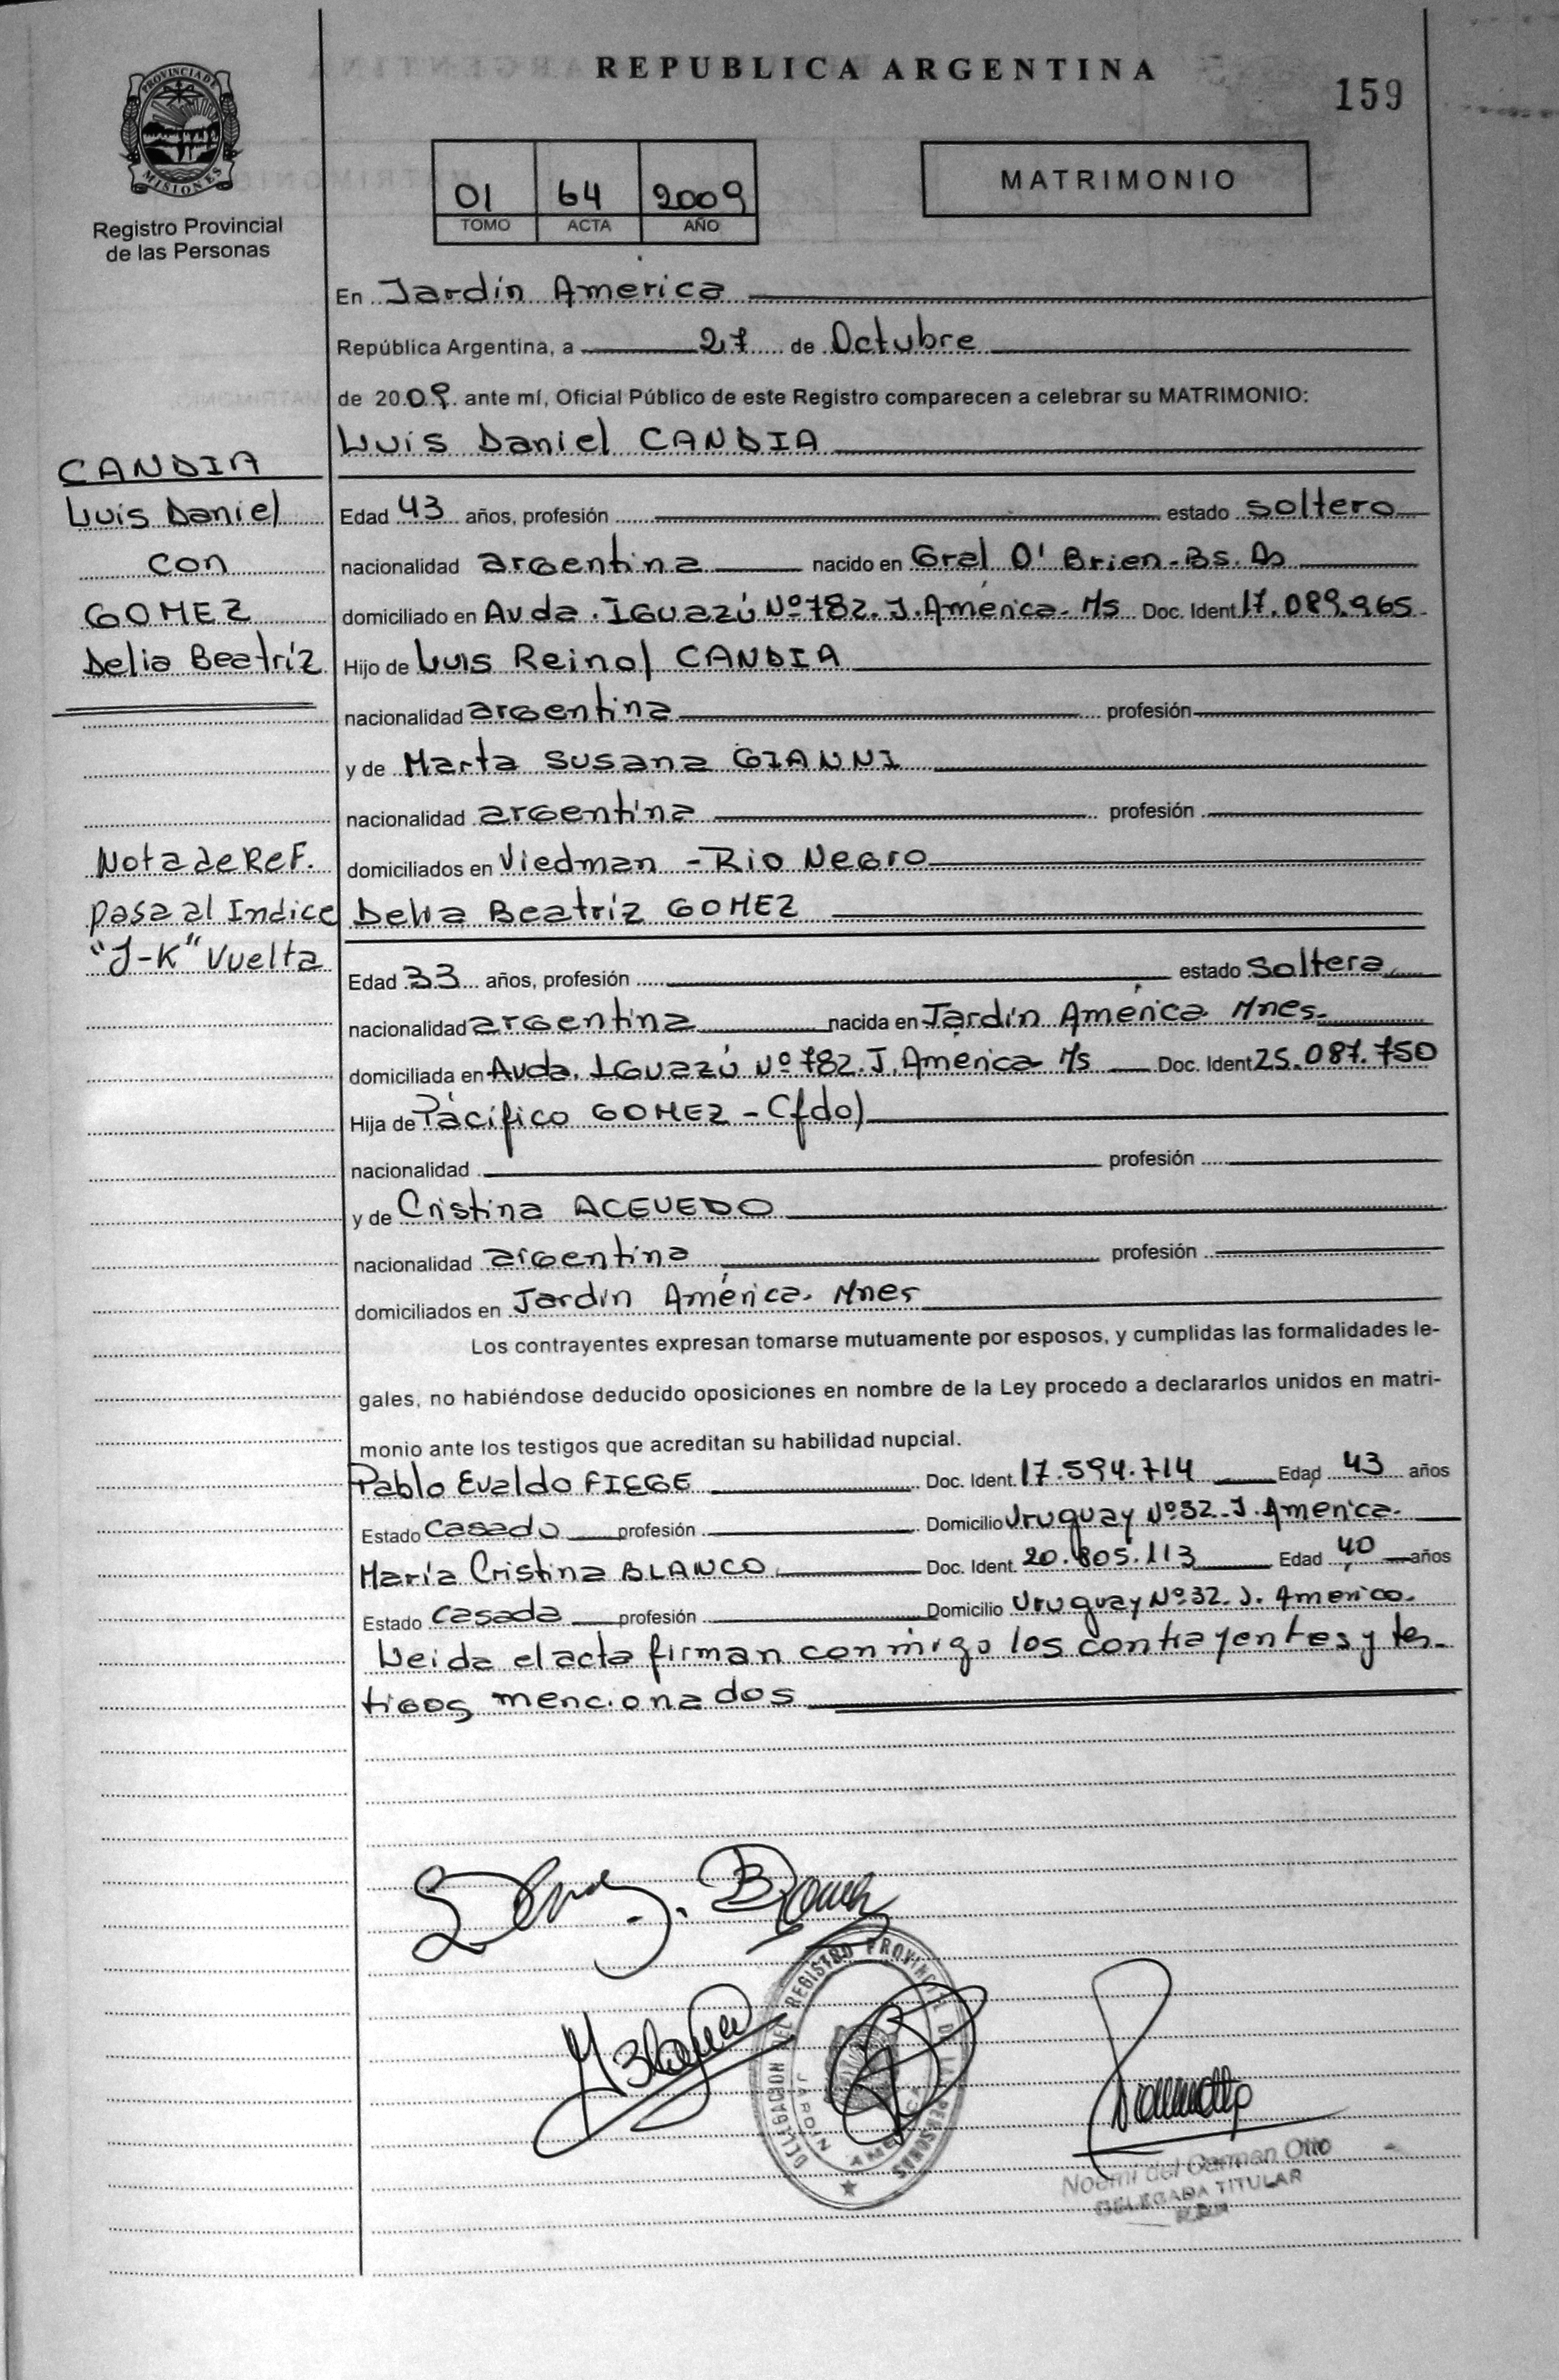 REPUBLICA ARGENTINA
159
PROVINCIA DE MISIONES
Registro Provincial
de las Personas
01 64 2009
TOMO ACTA AÑO
MATRIMONIO
En Jardín America
República Argentina, a 27 de Octubre
de 2009 ante mí, Oficial Público de este Registro comparecen a celebrar su MATRIMONIO:
Luis Daniel CANDIA
CANDIA
Luis Daniel
con
GOMEZ
Delia Beatríz
Nota de ReF.
pasa al Indice
"J-K" Vuelta
Edad 43 años, profesión estado soltero
nacionalidad argentina nacido en Gral O' Brien-Bs. As
domiciliado en Avda. Iguazú Nº782. J. América-Ms Doc. Ident 17.089.965
Hijo de Luis Reinol CANDIA
nacionalidad argentina profesión
y de Marta Susana GIANNI
nacionalidad argentina profesión
domiciliados en Viedman - Rio Negro
Delia Beatríz GOMEZ
Edad 33 años, profesión estado soltera
nacionalidad argentina nacida en Jardín América Mnes.
domiciliada en Avda. Iguazú Nº782. J. América Ms Doc. Ident 25.087.750
Hija de Pacífico GOMEZ - (fdo)
nacionalidad profesión
y de Cristina ACEVEDO
nacionalidad argentina profesión
domiciliados en Jardín América. Mnes
Los contrayentes expresan tomarse mutuamente por esposos, y cumplidas las formalidades le-
gales, no habiéndose deducido oposiciones en nombre de la Ley procedo a declararlos unidos en matri-
monio ante los testigos que acreditan su habilidad nupcial.
Pablo Evaldo FIEGE Doc. Ident. 17.594.714 Edad 43 años
Estado casado profesión Domicilio Uruguay Nº32. J. America.
María Cristina BLANCO Doc. Ident. 20.805.113 Edad 40 años
Estado casada profesión Domicilio Uruguay Nº32. J. America.
Leida el acta firman conmigo los contrayentes y tes-
tigos mencionados
DELEGACION DEL REGISTRO PROVINCIAL DE LAS PERSONAS
JARDIN AMERICA
Noemi del Carmen Otto
DELEGADA TITULAR